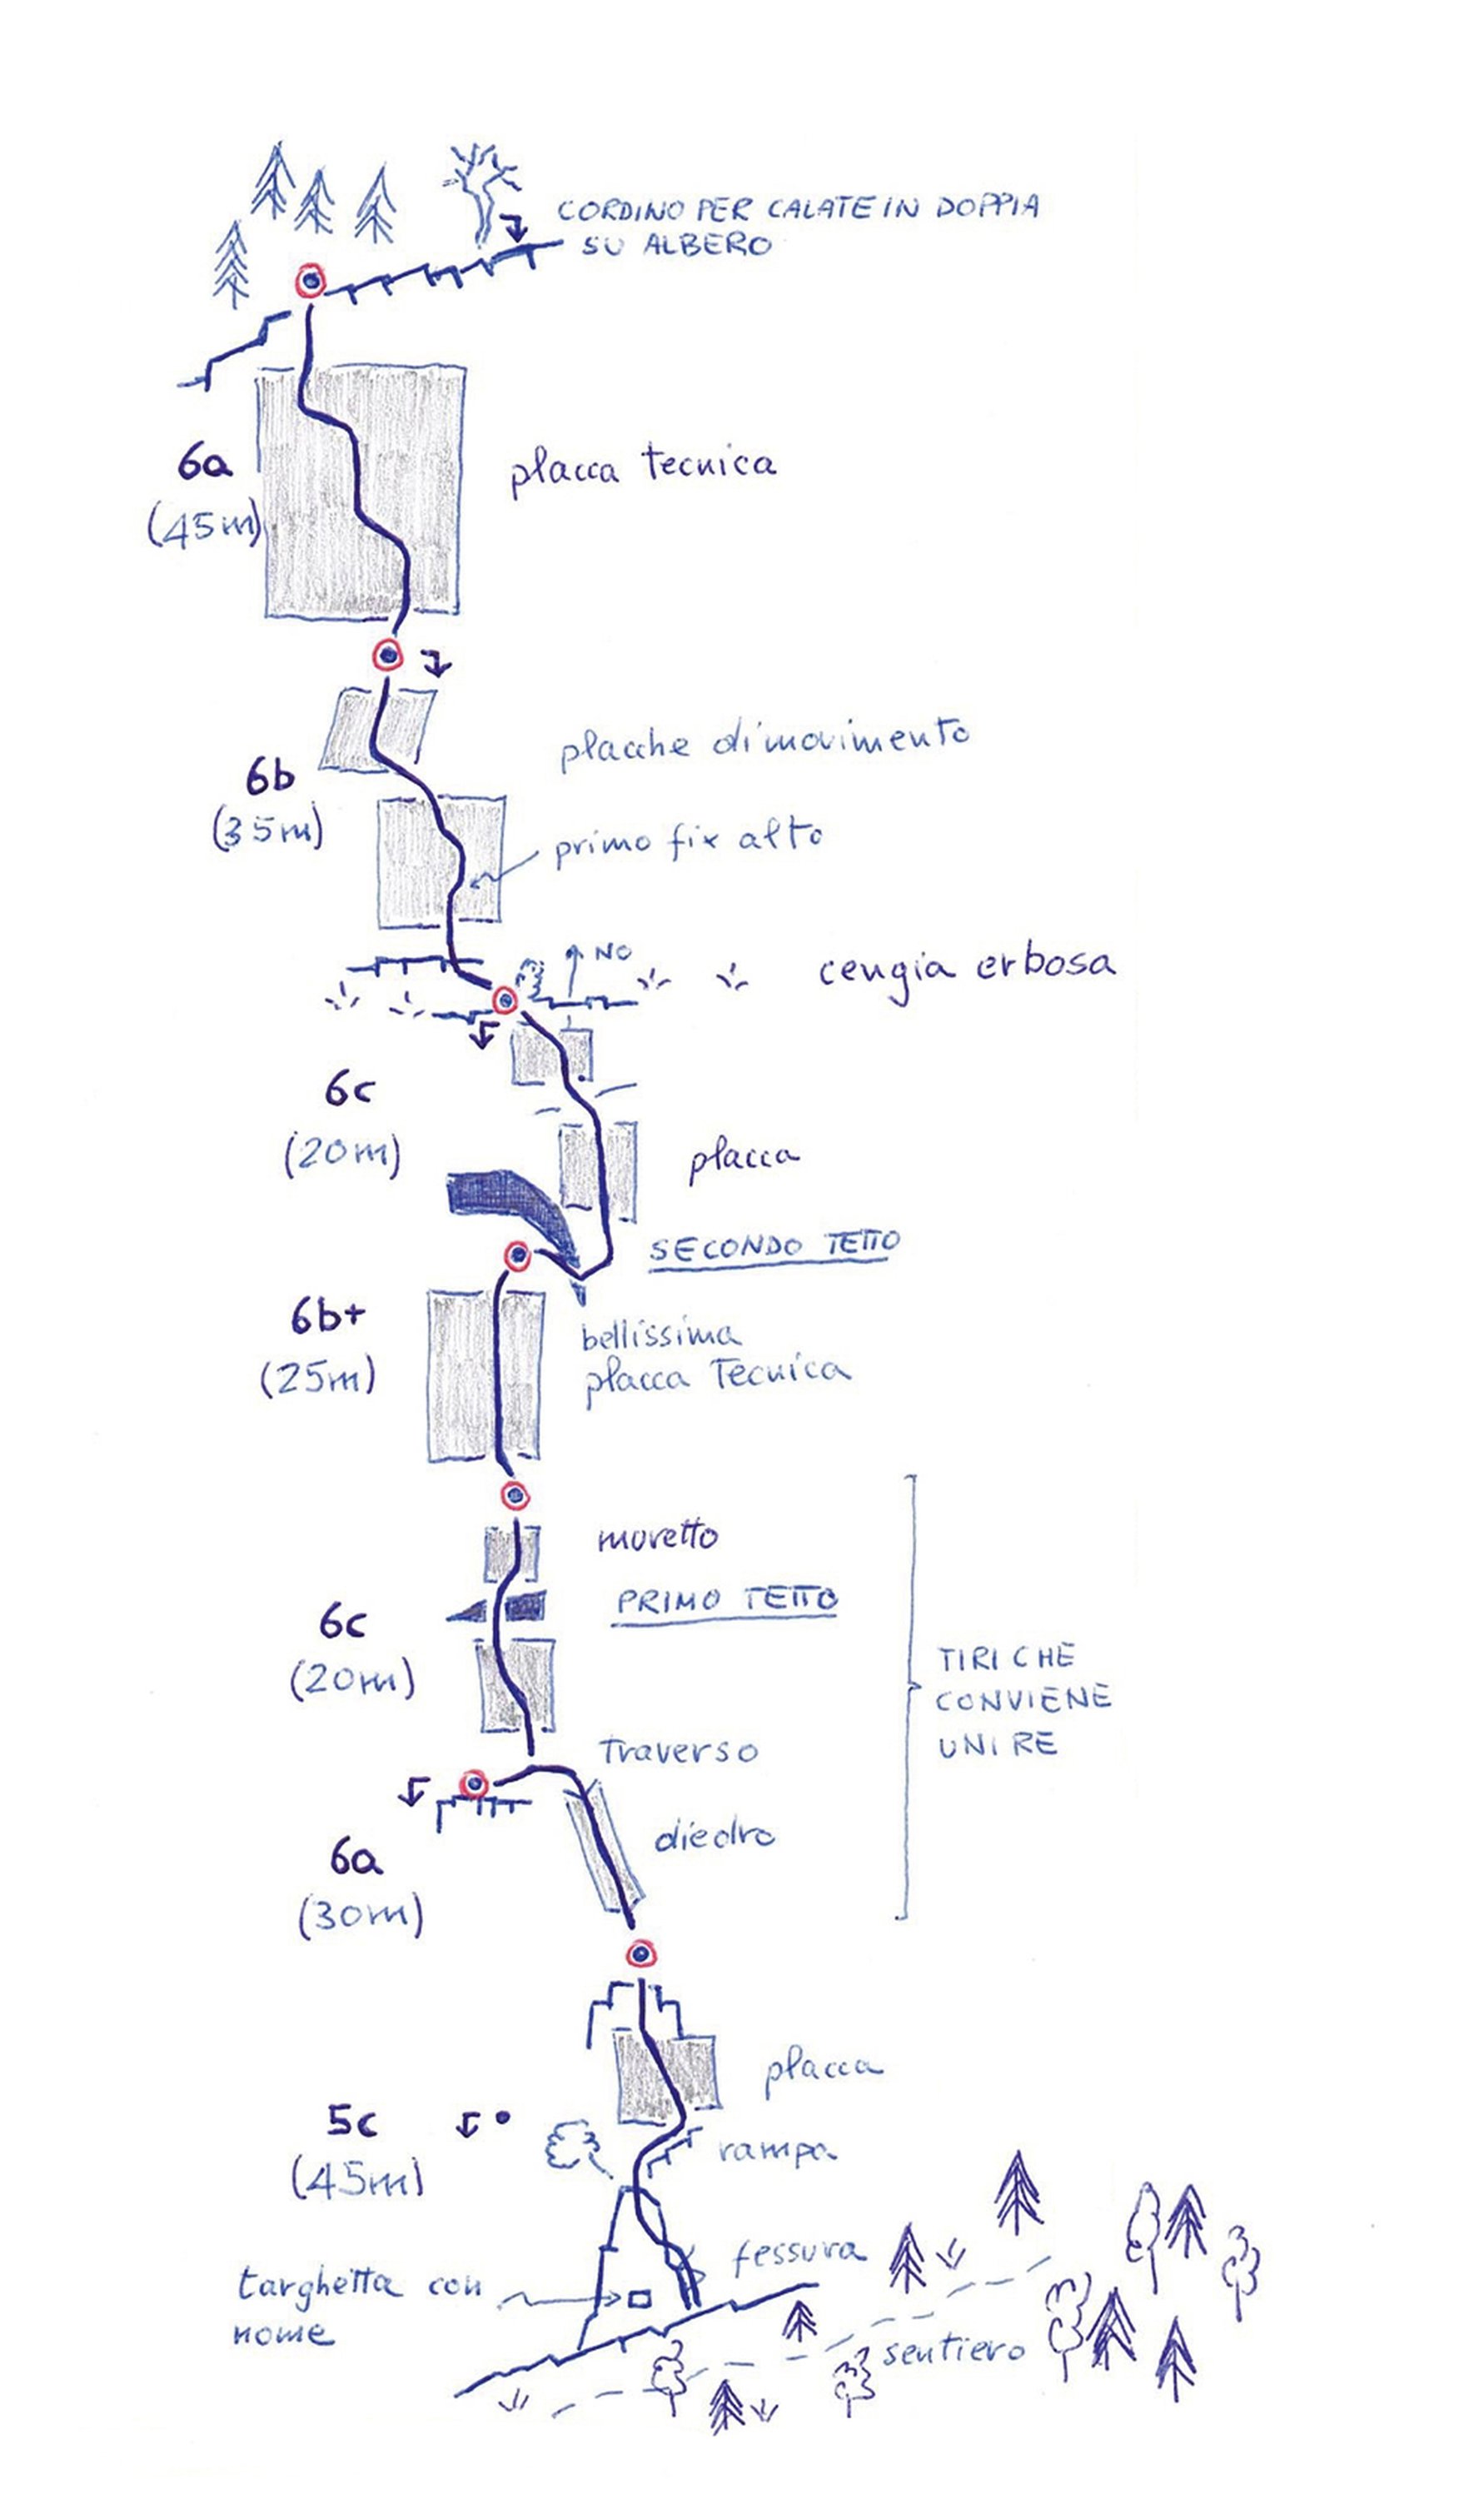 CORDINO PER CALATE IN DOPPIA
SU ALBERO
6a
(45m)
placca tecnica
placche di movimento
6b
(35m)
primo fix alto
NO
cengia erbosa
6c
(20m)
placca
SECONDO TETTO
6b+
(25m)
bellissima
placca Tecnica
muretto
PRIMO TETTO
6c
(20m)
TIRI CHE
CONVIENE
UNIRE
Traverso
diedro
6a
(30m)
placca
5c
(45m)
rampa
fessura
targhetta con
nome
sentiero